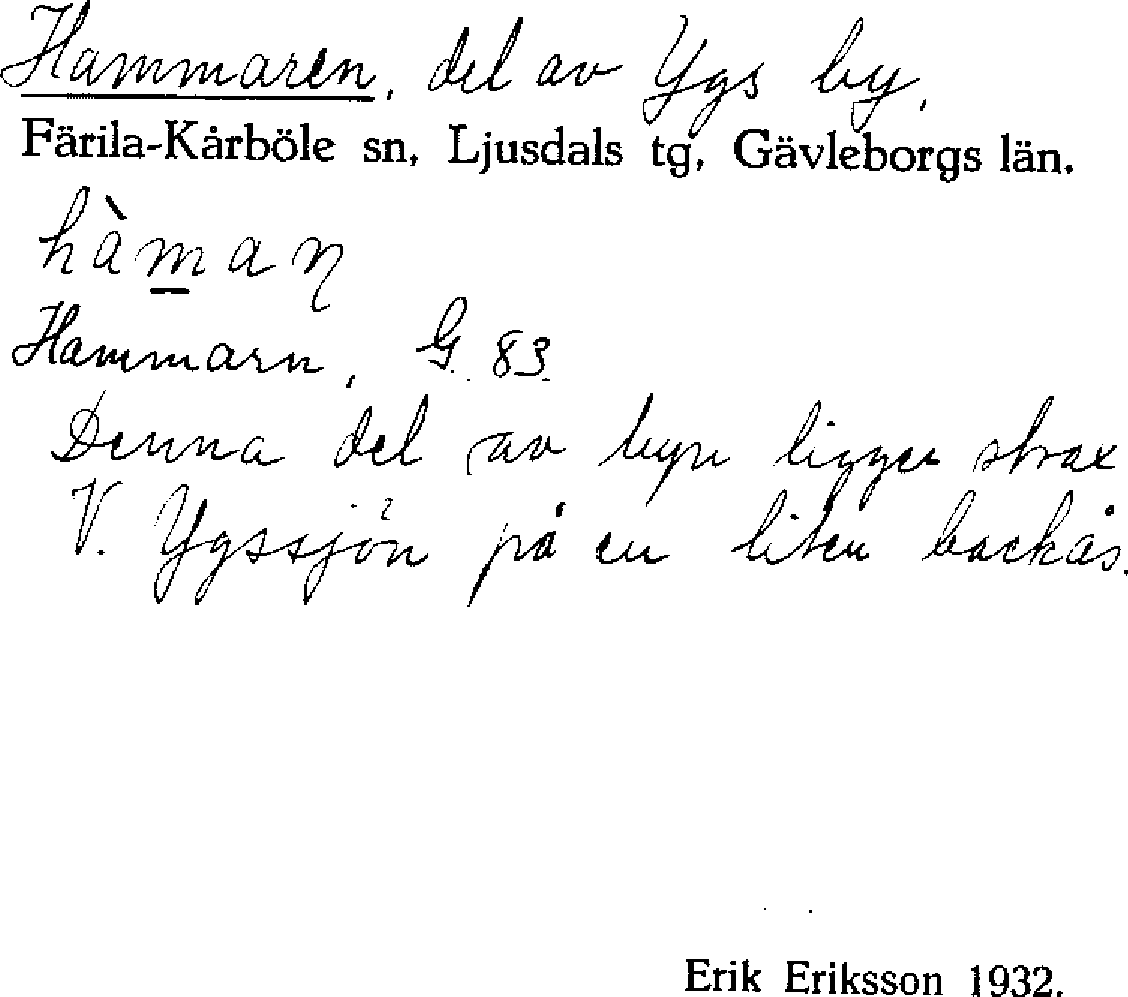 Hammaren, del av Ygs by,
Färila-Kårböle sn, Ljusdals tg, Gävleborgs län.
hàman̡
Hammarn, G. 83.
Denna del av byn ligger strax
V. Ygssjön på en liten backås.
Erik Eriksson 1932.